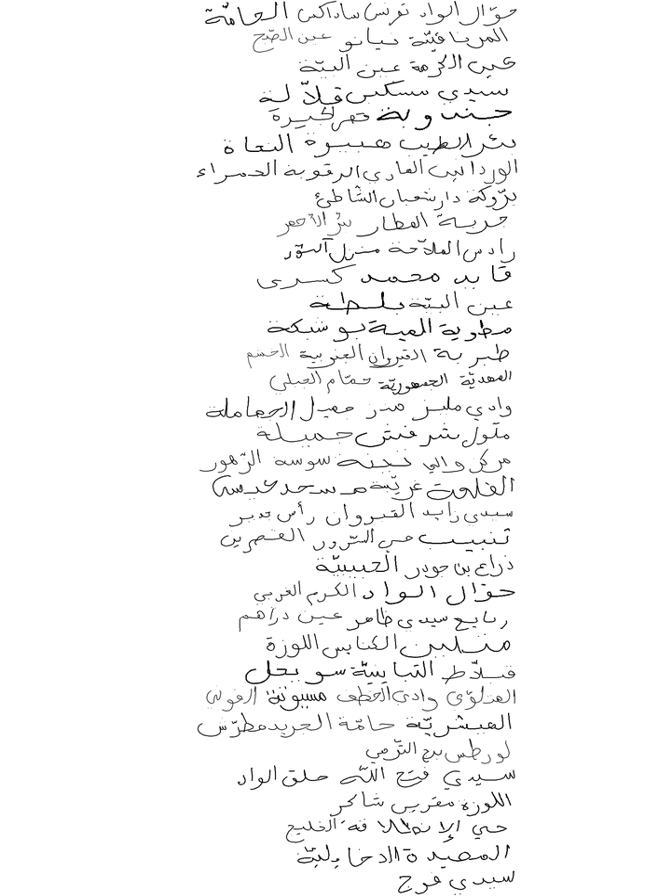 حوّال الواد تونس ساراكس العامّة
المرناقيّة نيانو عين الضّح
عين الكرمة عين البنيّة
سيدي مسكين قلاّلية
جندوبة قصر الجيرة
بئر الطيب هبيرة النعاة
الوردانين الهادي الرقوبة الحمراء
بزّوكة دار شعبان الشّاطئ
جربة العطار بئر الأحمر
رادس الملاّحة منزل النّور
قايد محمد كسرى
عين البنيّة بلطة
مطوية المية بوشبكة
طبربة القيروان الجنوبية الخشم
المهديّة الجمهوريّة حمّام الجبلي
وادي مليز منزر جميل الجعاملة
متلول بئر فنيش جميلة
مركز والي نجنة سوسة الزّهور
القلعة غريّسة مسجد عيسى
سيدي زايد القيروان رأس جدير
تنبيب حي السّرور القصرين
ذراع بن جودر الحبيبيّة
حوّال الواد الكرم الغربي
ربايع سيدي ظاهر عين دراهم
منلبن الكنايس اللوزة
قبلاّط التباينيّة سويحل
المتلوّي وادي الخطف مسيوتة الفولي
المبشريّة حامّة الجريد مطرّش
لورطس برج التّرمي
سيدي فتح اللّه حلق الواد
اللوزة مقرين شاكر
حي الإنطلاقة الخليج
المصيدة الدخايليّة
سيدي فرج